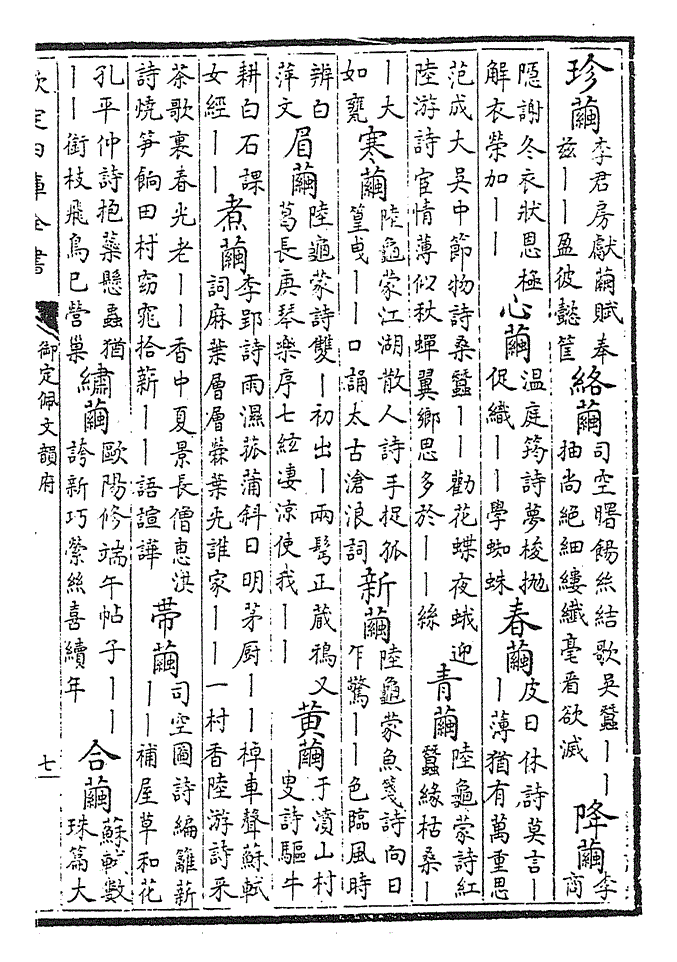 珍繭李君房獻繭賦奉兹丨丨盈彼懿筐絡繭司空曙餳絲結歌吳蠶丨丨抽尚絕細縷纖毫看欲滅降繭李商
隱謝冬衣狀恩極解衣榮加丨丨心繭温庭筠詩夢梭抛促織丨丨學蜘蛛春繭皮日休詩莫言丨丨薄猶有萬重思
范成大吳中節物詩桑蠶丨丨勸花蝶夜蛾迎陸游詩宦情薄似秋蟬翼鄉思多於丨丨絲青繭陸龜蒙詩紅蠶緣枯桑丨
丨大如甕寒繭陸龜蒙江湖散人詩手捉孤篁曳丨丨口誦太古滄浪詞新繭陸龜蒙魚箋詩向日乍驚丨丨色臨風時
辨白萍文眉繭陸龜蒙詩雙丨初出丨兩髩正蔵鴉又葛長庚琴樂序七絃凄涼使我丨丨黃繭于濆山村叟詩驅牛
耕白石課女經丨丨煮繭李郢詩雨濕菰蒲斜日明茅厨丨丨棹車聲蘇軾詞麻葉層層檾葉光誰家丨丨一村香陸游詩采
茶歌裏春光老丨丨香中夏景長僧惠洪詩燒笋餉田村窈窕拾薪丨丨語諠譁帶繭司空圖詩編籬薪丨丨補屋草和花
孔平仲詩抱藥懸蟲猶丨丨銜枝飛鳥已營巢繡繭歐陽修端午帖子丨丨誇新巧縈絲喜續年合繭蘇軾數珠篇大
欽定四庫全書
御定佩文韻府
七